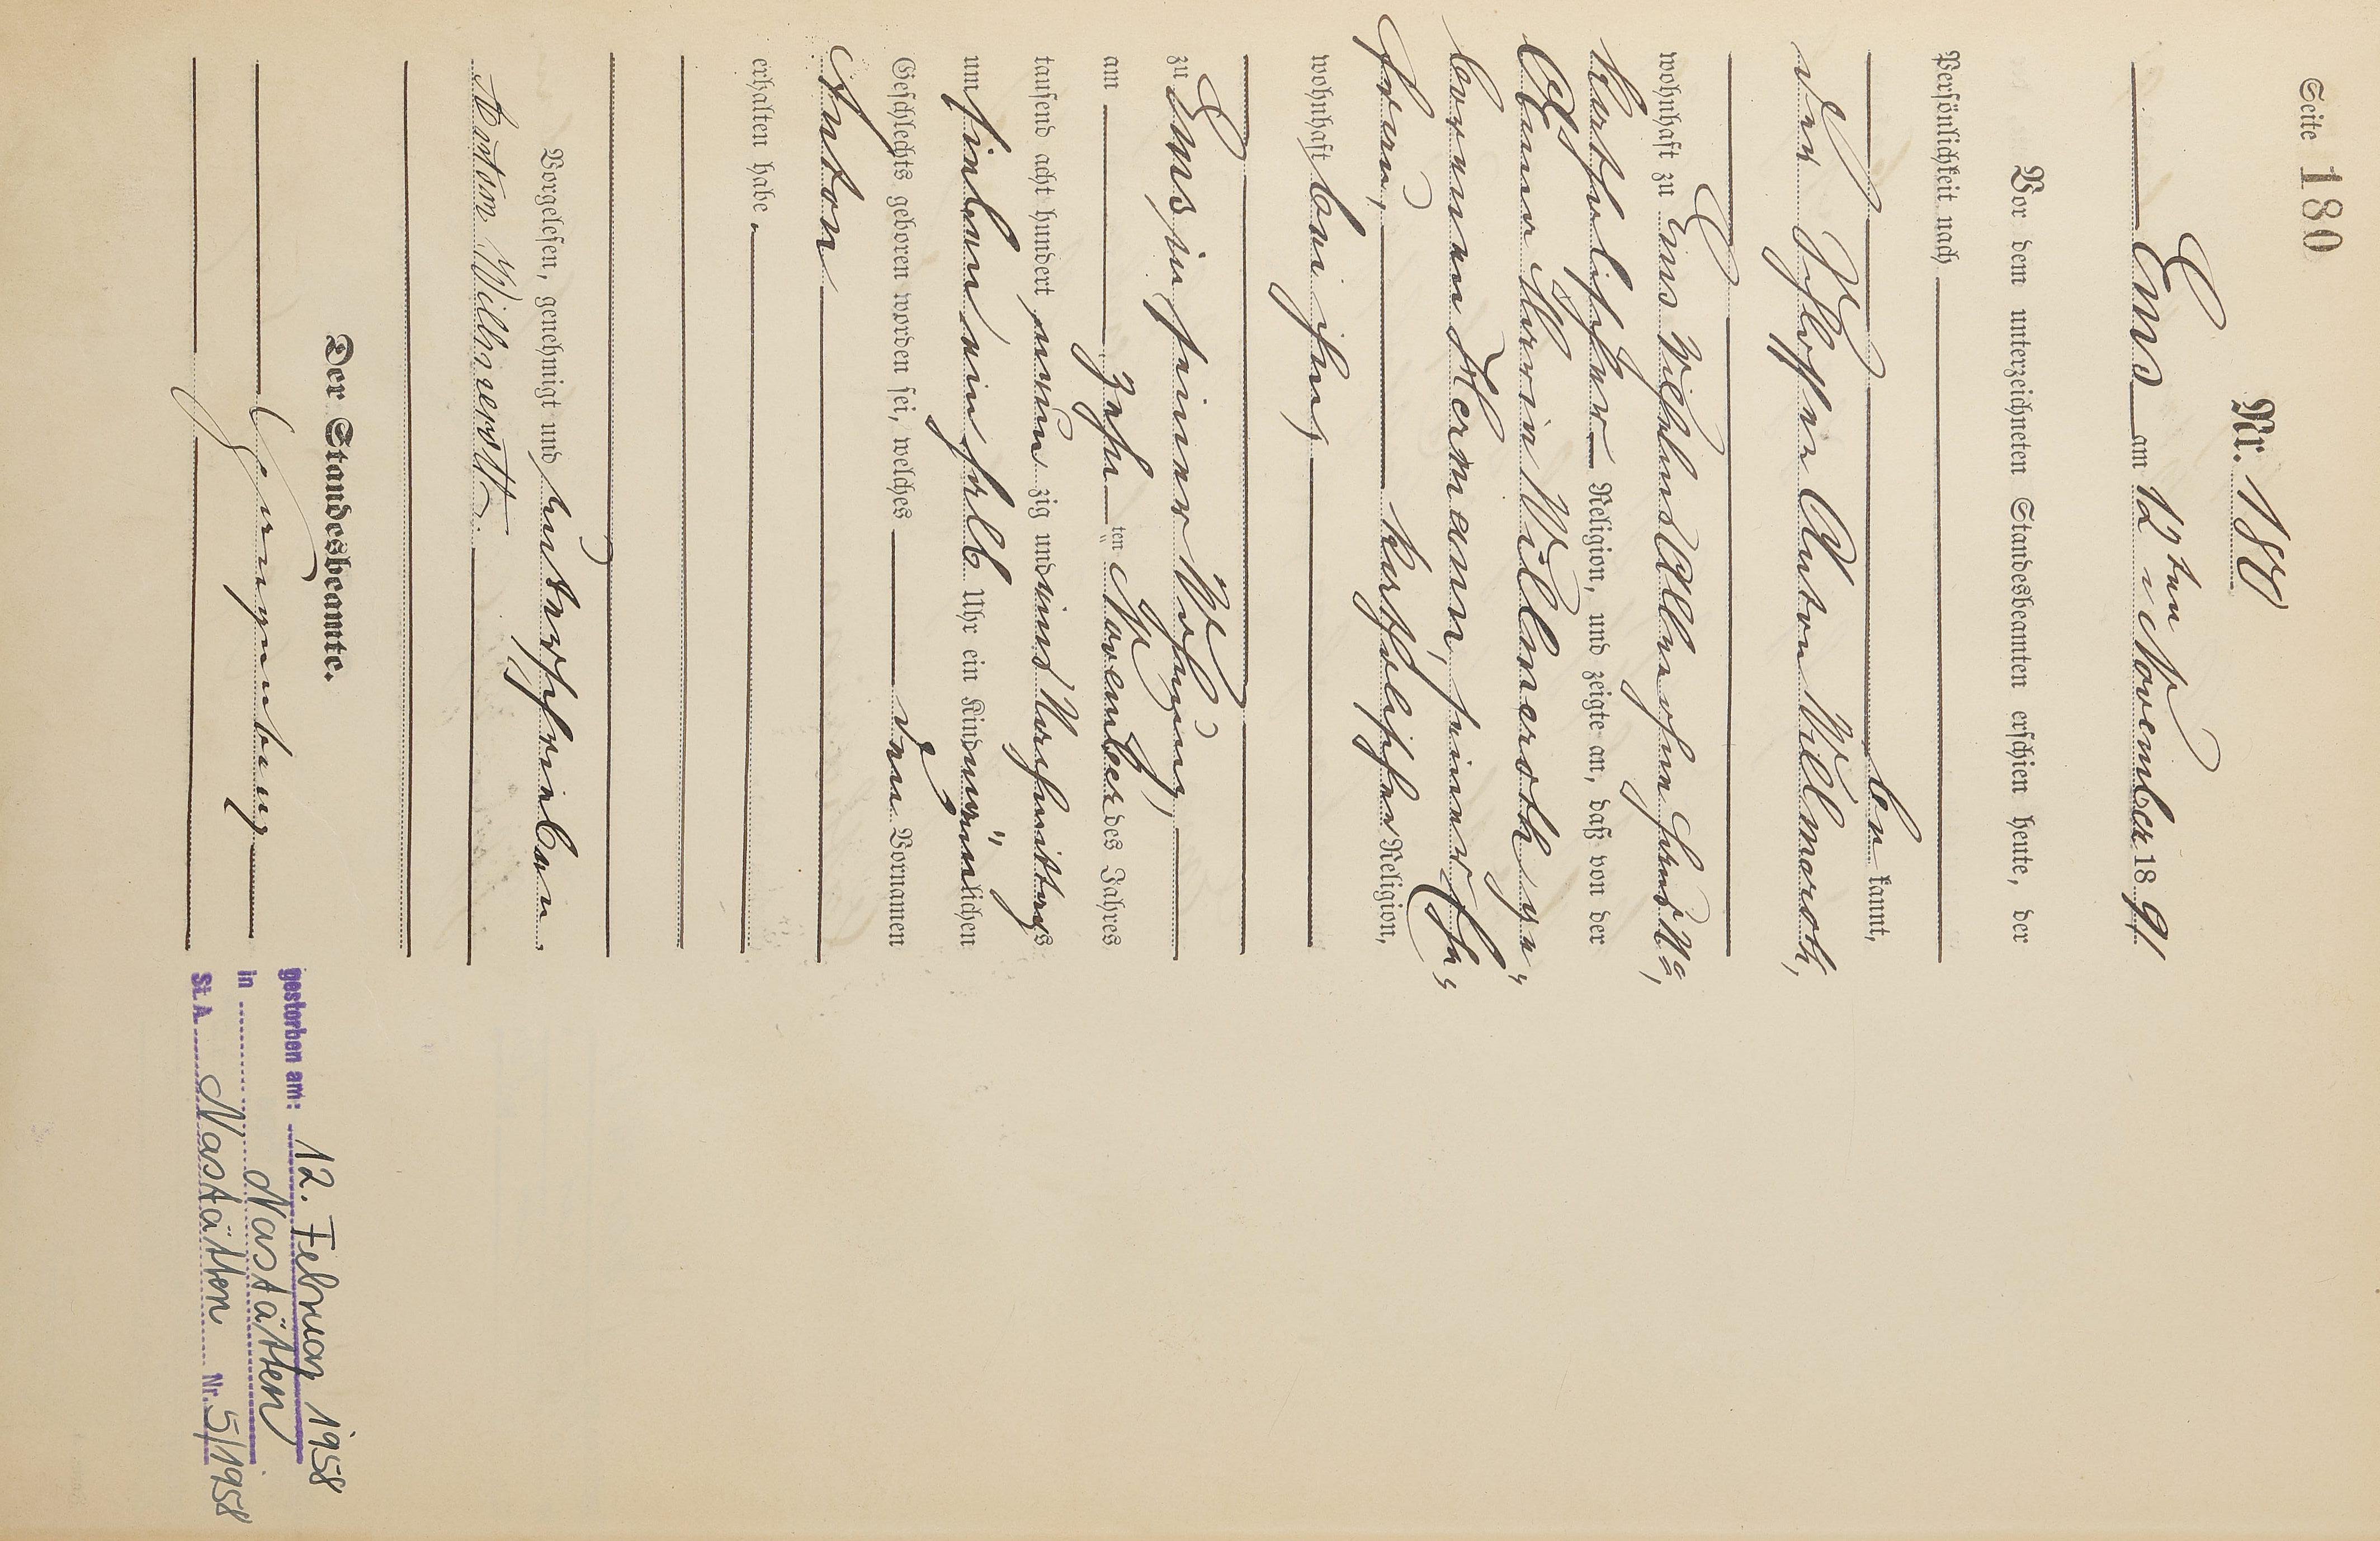 Seite 180
Nr. 180
Ems am 12ten November 1891
Vor dem unterzeichneten Standesbeamten erschien heute, der
Persönlichkeit nach
be kannt,
der Schlosser Anton Willmeroth,
wohnhaft zu Ems Wilhelms Allee ohne Haus No,
katholischer Religion, und zeigte an, daß von der
Anna Maria Willmeroth ge„
borenen Hermann, seiner Ehe„
frau, katholischer Religion,
wohnhaft bei ihm,
zu Ems in seiner Wohnung,
am zehn ten November des Jahres
tausend acht hundert neun zig und eins Nachmittags
um sieben ein halb Uhr ein Kind männ„lichen
Geschlechts geboren worden sei, welches den Vornamen
Anton
erhalten habe.
Vorgelesen, genehmigt und unterschrieben.
Anton Willmeroth.
Der Standesbeamte.
gestorben am: 12. Februar 1958
in Nastätten
St. A. Nastätten Nr. 5/1958